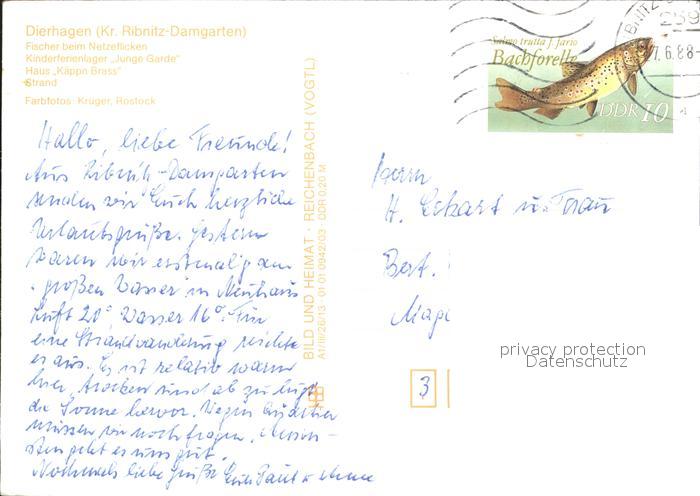 Dierhagen (Kr. Ribnitz-Damgarten)
Fischer beim Netzeflicken
Kinderferienlager „Junge Garde"
Haus „Käppn Brass"
Strand
Farbfotos: Kruger, Rostock
Hallo, liebe Freunde!
Aus Ribnitz-Damgarten
senden wir Euch herzliche
Urlaubsgrüße. Gestern
waren wir erstmalig am
großen Wasser in Neuhaus
Luft 20°, Wasser 16°. Für
eine Strandwanderung reichte
es aus. Es ist relativ warm
hier, trocken und ab zu lugt
die Sonne hervor. Wegen
müssen wir noch fragen. Ansonsten
geht es uns gut.
Nochmals liebe Grüße Eure Paul u.
BILD UND HEIMAT · REICHENBACH (VOGTL)
A1/III/26/13 01 01 0942/03 · DDR 0,20 M
Salmo trutta f. fario
Bachforelle
DDR 10
BNITZ
239
7.6.88-
Herrn
H. Eckart u. Frau
Bert.
Mag
3
privacy protection
Datenschutz